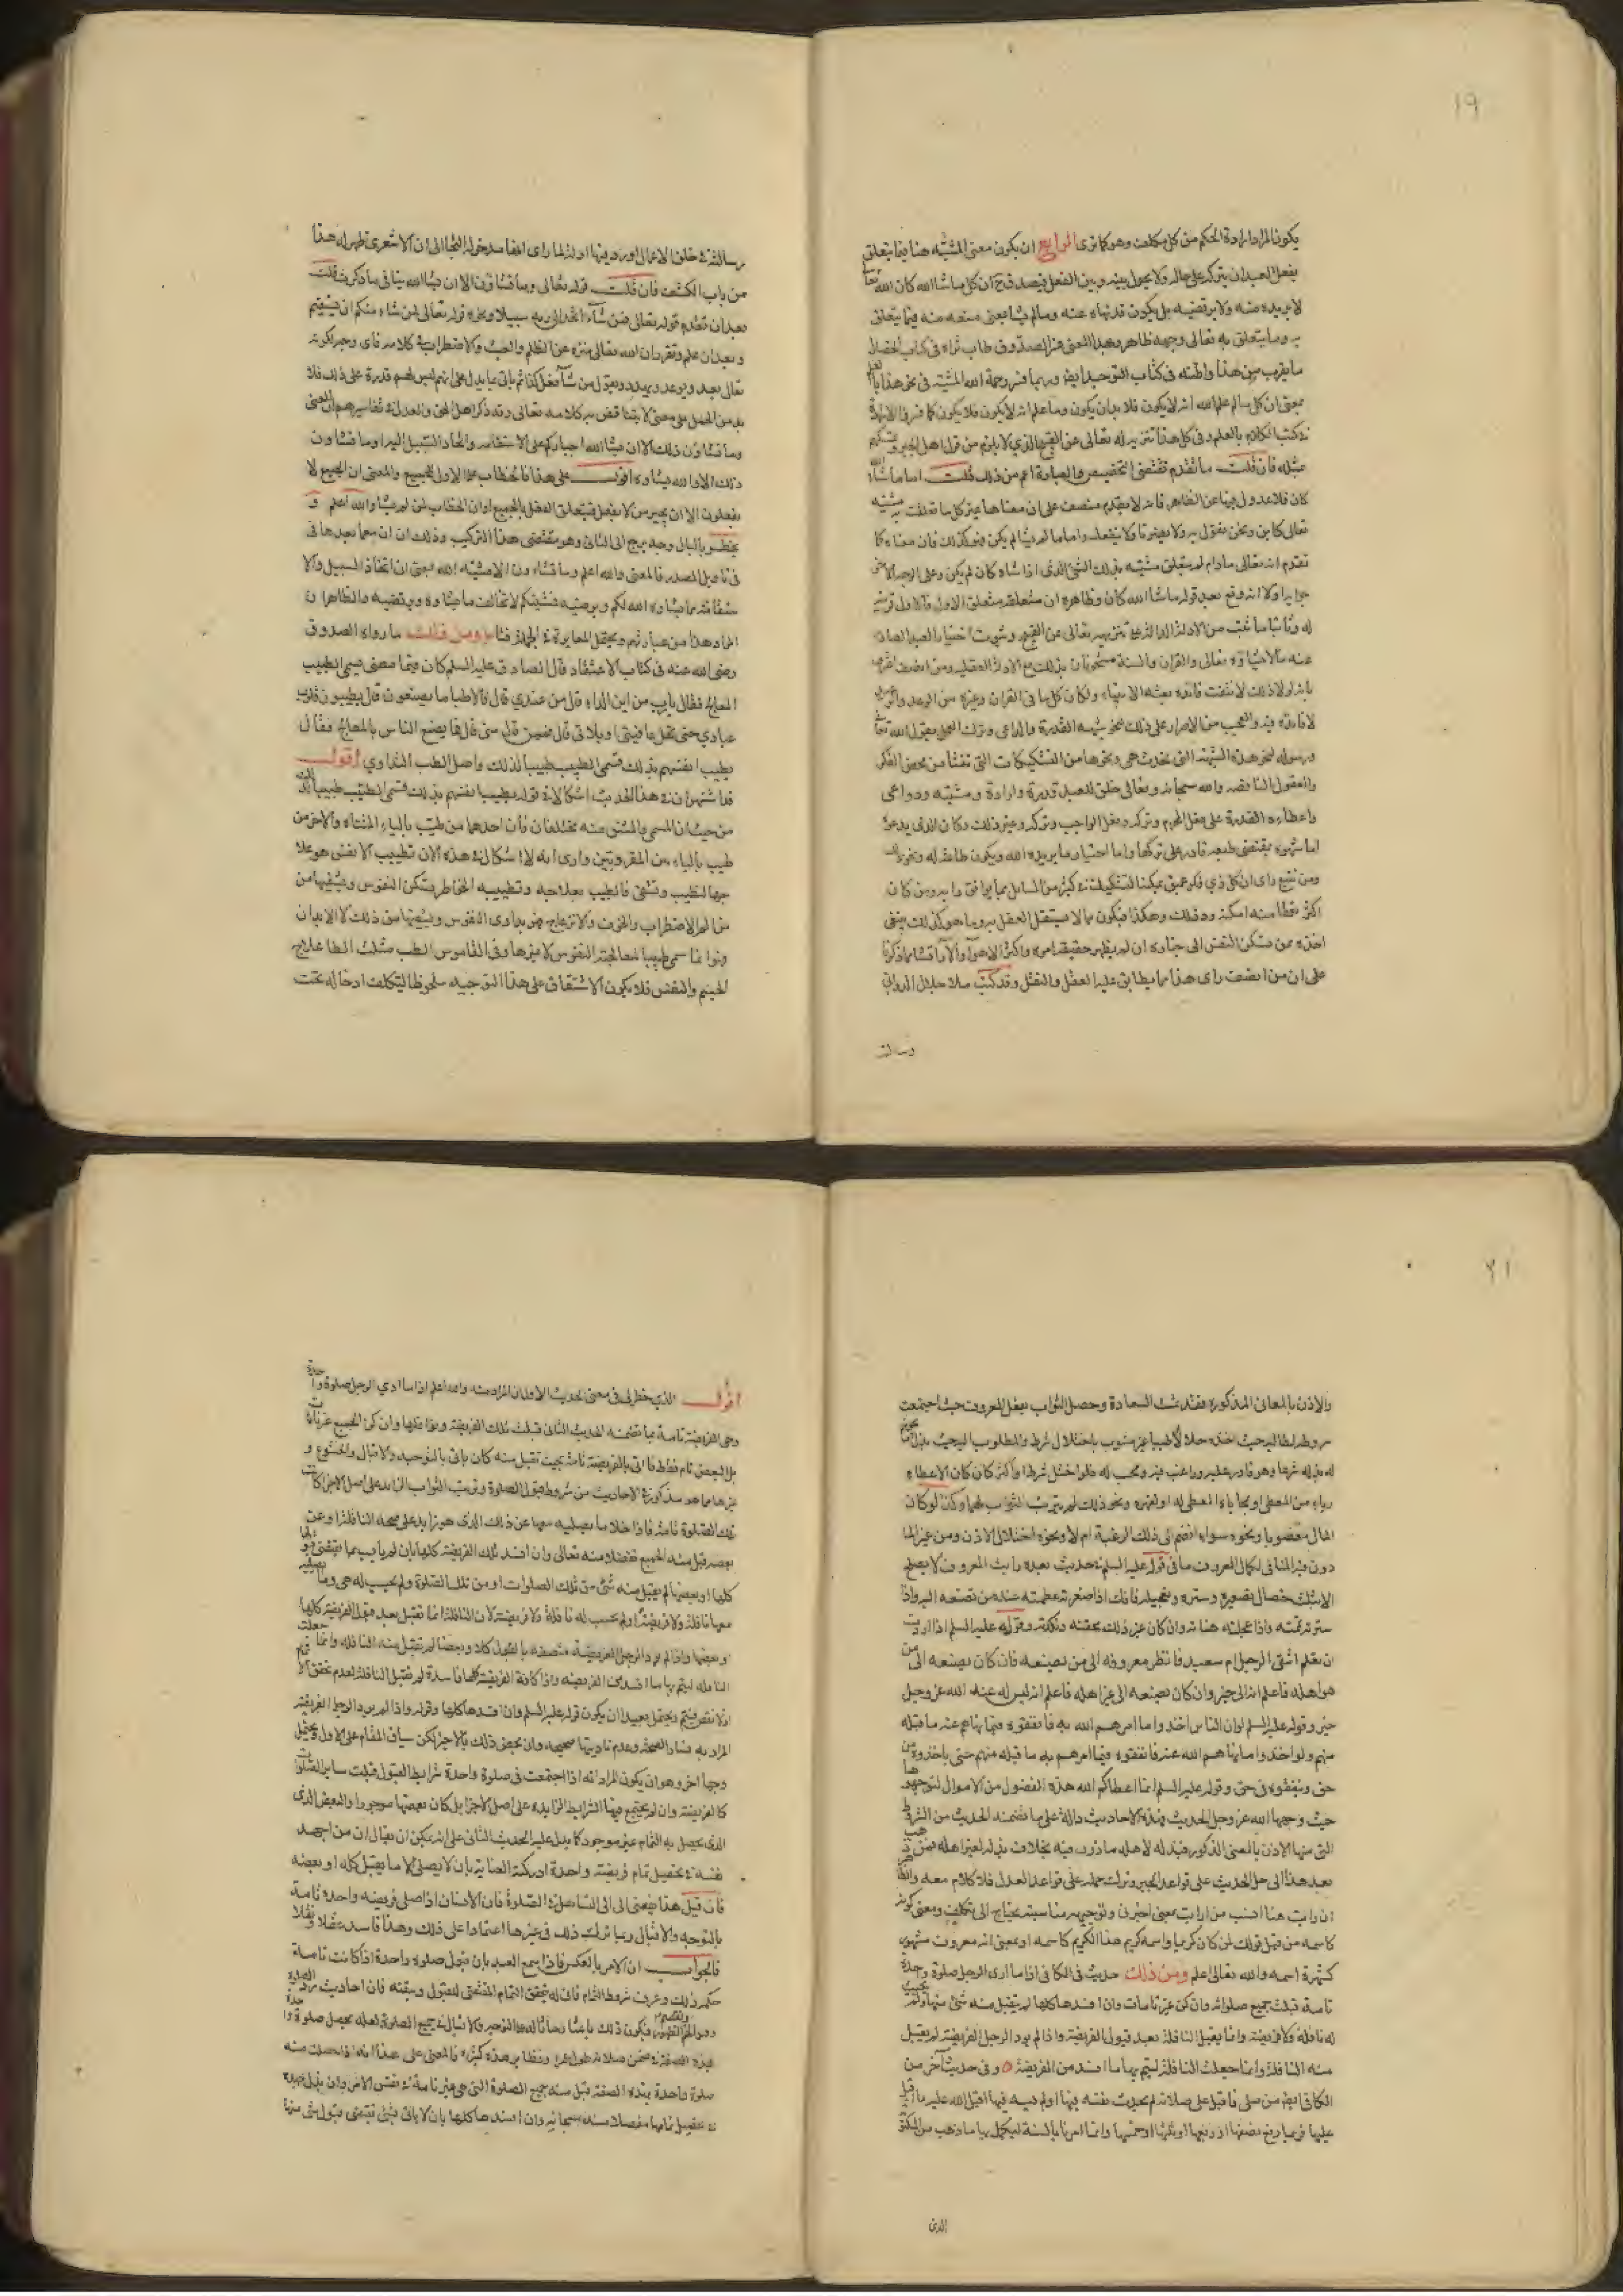 ١٩
يكون المراد ارادة الحكم من كل مكلف وهو كما ترى الرابع ان يكون معنى المشيّه هنا فيما يتعلق
بفعل العبد ان يتركه على حاله ولا يحول بينه وبين الفعل فيصدق ح ان كل ما شا الله كان الله تعا
لا يريده منه ولا يرتضيه بل يكون قد نهاه عنه وما لم يشا بمعنى منعه منه فيما يتعلق
به وما يتعلق به تعالى وجهه ظاهر وهذا المعنى هو الصدوق طاب ثراه في كتاب الخصال
ما يقرب من هذا واظنه في كتاب التوحيد ايض وربما فسر رحمة الله المشيّة في نحو هذا
بمعنى ان كل ما لم علم الله انه لا يكون فلا بد ان يكون وما علم انه لا يكون فلا يكون كما
كتب الكلام بالعلم وفي كل هذا تنزيه له تعالى عن القبيح الذي لا يلزم من قول اهل الجبر
مثله فان قلت ما تقدم تقتضى التخصيص والعبارة اعم من ذلك قلت اما ما شا الله
كان فلا عدول فيها عن الظاهر فانه لا يقدم منصف على ان معناها غير كل ما تعلقت به مشيّته
تعالى كاين ونحن نقول به ولا يضرنا ولا ينفعك واما ما لم يشا لم يكن فهو كذلك فان معناه كما
تقدم انه تعالى مادام لم يتعلق مشيّته بذلك الشئ الذى اذا شاه كان لم يكن وعلى الوجه الاخر
جوابه اولا انه وقع بعد قوله ما شا الله كان وظاهره ان متعلقه متعلق الاول فالاول قرينة
له وثانيا ما ثبت من الادلة الدالة على تنزيهه تعالى عن القبيح وثبوت اختيار العبد الصادر
عنه ما لا يشاؤه تعالى والقران والسنة مشحونان بذلك مع الادلة العقليه ومن انصف اعترف
بانه لولا ذلك لانتفت فائدة بعثة الانبياء ولكان كل ما في القران وغيره من الوعد والوعيد
لا فائدة فيه والعجب من الاصرار على ذلك لنحو شبهة القدرة والداعى وترك العمل بقول الله تعا
ورسوله لنحو هذه الشبهة التى يحدث هى ونحوها من التشكيكات التى تنشا من محض الفكر
والعقول الناقصه والله سبحانه وتعالى خلق للعبد قدرة وارادة ومشيّه ودواعى
واعطاه القدرة على فعل المحرم وتركه وفعل الواجب وتركه وغير ذلك وكان الذى يدعوه
اما شهوه بمقتضى طبعه قادر على تركها واما اختيار ما يريده الله ويكون طاعة له ونحو ذلك
ومن تتبع راى ان كل ذي فكر عميق يمكنه التشكيك في كثير من المسايل بما يوافق رايه ومن كان
اكثر تفطنا منه امكنه رد ذلك وهكذا فيكون ما لا يستقل العقل به وما هو كذلك ينبغى
اخذه ممن تسكن النفس الى خباره ان لم يظهر حقيقة امره واكثر الاهوا والآرا تنشا مما ذكرنا
على ان من انصف راى هذا مما يطابق عليه العقل والنقل وقد كتب ملا جلال الدوانى
رسالته

رسالته في خلق الاعمال اورد فيها ادلة لما راى انها مدخوله التجا الى ان الاشعرى ظهر له هذا
من باب الكشف فان قلت قوله تعالى وما تشاؤن الا ان يشا الله ينافى ما ذكرت قلت
بعد ان تقدم قوله تعالى فمن شآ اتخذ الى ربه سبيلا ونحوه قوله تعالى لمن شاء منكم ان يستقيم
وبعد ان علم وتقرر ان الله تعالى منزه عن الظلم والعبث ولا اضطراب في كلامه فاى وجه لكونه
تعالى يعد ويوعد ويهدد ويقول من شآ فعل كذا ثم ياتى بما يدل على انهم ليس لهم قدرة على ذلك فلا
بد من الحمل على معنى لا يتناقض به كلامه تعالى وقد ذكر اهل الحق والعدل في تفاسيرهم ان المعنى
وما تشاؤن ذلك الا ان يشا الله اجباركم على الاستقامه واتخاذ السبيل اليه او ما تشاؤن
ذلك الا والله يشاؤه اقول على هذا فالخطاب على الاول للجميع والمعنى ان الجميع لا
يفعلون الا ان يجبر من لا يفعل فيتعلق الفعل بالجميع او ان الخطاب لمن لم يشا والله اعلم و
يخطر بالبال وجه يرجع الى الثانى وهو مقتضى هذا التركيب وذلك ان ان مع ما بعدها فى
فى تاويل المصدر فالمعنى والله اعلم وما تشاؤن الا مشيّة الله بمعنى ان اتخاذ السبيل والا
ستقامة مما يشاؤه الله لكم ويرضيه فمشيّتكم لا تخالف ما يشاؤه ويرتضيه والظاهر ان
المراد هذا من عبارتهم ويحتمل المغايرة في الجملة فتا ومن ذلك ما رواه الصدوق
رضى الله عنه فى كتاب الاعتقاد قال الصادق عليه السلم كان فيما مضى يسمى الطبيب
المعالج فقال يا رب من اين الداء قال من عندي قال فالاطبا ما يصنعون قال يطيبون قلوب
عبادي حتى تحل عافيتى او بلائى قال فمن قال منى قال فما يصنع الناس بالمعالج فقال
يطيب انفسهم بذلك فسمى الطبيب طبيبا لذلك واصل الطب التداوي اقول
قد اشتهر ان في هذا الحديث اشكالا في قوله يطيب انفسهم بذلك فسمى الطبيب طبيبا
من حيث ان المسمى والمشتق منه مختلفان فان احدهما من طيّب بالياء المثناة والاخر من
طبب بالباء من المقرونتين وارى انه لا اشكال في هذه لان تطييب الانفس هو علا
جها لتطيب وتشفى فالطبيب بعلاجه وتطييبه الخاطر يسكن النفوس ويشفيها من
من الم الاضطراب والخوف والانزعاج فهو يداوى النفوس ويشفيها من ذلك لا الابدان
وانما سمى طبيبا لمعالجته النفوس لا غيرها وفى القاموس الطب مثلث الطا علاج
الجسم والنفس فلا يكون الاشتقاق على هذا التوجيه ملحوظا ليتكلف ادخاله تحت

٢١
والاذن بالمعانى المذكوره فقد تمت السعادة وحصل الثواب بفعل المعروف حيث اجتمعت
شروطه لطالبه حيث اخذه حلالا طيبا غير مشوب باختلال شرط والمطلوب اليه حيث بذل ما
له بذله شرعا وهو قادر عليه وراغب فيه ومحب له فلو اختل شرط او اكثر كان كان الاعطاء
رياء من المعطى او نحابا به المعطى له او لغيره ونحو ذلك لم يترتب الثواب لهما وكذا لو كان
المال مغصوبا ونحوه سواء انضم الى ذلك الرغبة ام لا ونحوه اختلال الاذن ومن غير الما
دون فيه المنافى لكمال المعروف ما فى قوله عليه السلم في حديث بعده رايت المعروف لا يصلح
الا بثلث خصال تصغيره وستره وتعجيله فانك اذا صغرته عظمته عند من تصنعه اليه واذا
سترته تممته واذا عجلته هناته وان كان غير ذلك محقته ونكدته وقوله عليه السلم اذا اردت
ان تعلم اشقى الرجل ام سعيد فانظر معروفه الى من يصنعه فان كان يصنعه الى من
هو اهله فاعلم انه الى خير وان كان يصنعه الى غير اهله فاعلم انه ليس له عند الله عز وجل
خير وقوله عليه السلم لو ان الناس اخذوا ما امرهم الله به فانفقوه فيما نهاهم عنه ما قبله
منهم ولو اخذوا ما نهاهم الله عنه فانفقوه فيما امرهم به ما قبله منهم حتى ياخذوه من
حق وينفقوه فى حق وقوله عليه السلم انما اعطاكم الله هذه الفضول من الاموال لتوجهوها
حيث وجهها الله عز وجل الحديث وهذه الاحاديث دالة على ما تضمنه الحديث من الشروط
التى منها الاذن بالمعنى المذكور فبذله لاهله ماذون فيه بخلاف بذله لغير اهله فمن ذهب
بعد هذا الى حل الحديث على قواعد الجبر وترك حمله على قواعد العدل فلا كلام معه
ان رايت هنا انسب من ارايت بمعنى اخبرنى وتوجيهه مناسبته يحتاج الى تكلف ومعنى كونه
كاسمه من قبيل قولك لمن كان كريما واسمه كريم هذا الكريم كاسمه او بمعنى انه معروف مشهور
كشهرة اسمه والله تعالى اعلم ومن ذلك حديث فى الكافى اذا ما ادى الرجل صلوة واحدة
تامة قبلت جميع صلواته وان كن غير تامات وان افسدها كلها لم يقبل منه شئ منها ولم يحسب
له نافلة ولا فريضة وانما يقبل النافلة بعد قبول الفريضة واذا لم يود الرجل الفريضة لم يقبل
منه النافلة وانما جعلت النافلة ليتم بها ما افسد من الفريضة ه وفى حديث آخر من
الكافى ايض من صلى فاقبل على صلاته لم يحدث نفسه فيها او لم يسه فيها اقبل الله عليه ما اقبل
عليها فربما رفع نصفها او ربعها او ثلثها او خمسها وانما امرنا بالسنة ليكمل بها ما ذهب من المكتوبة
الذى

اقول الذى خطر لى فى معنى الحديث الاول ان المراد منه والله اعلم اذا ما ادي الرجل صلوة واحدة
وهى الفريضة تامة بما تضمنه الحديث الثانى قبلت تلك الفريضة ونوافلها وان كن الجميع غير تامات
بل البعض تام فقط فاتى بالفريضة تامة بحيث تقبل منه كان ياتى بالتوجيه والاقبال والخشوع و
غيرها مما هو مذكور في الاحاديث من شروط قبول الصلوة وترتب الثواب الزايد على اصل الاجزا كانت
تلك الصلوة تامة فاذا خلا ما يصليه معها عن ذلك الذى هو زايد على صحة النافلة او عن
بعضه قبل منه الجميع تفضلا منه تعالى وان افسد تلك الفريضة كلها بان لم يات بما يقتضى قبولها
كلها او بعضها لم يقبل منه شئ من تلك الصلوات او من تلك الصلوة ولم يحسب له هى وما يصليه
معها نافلة ولا فريضة او لم يحسب له نافلة ولا فريضة لان النافلة انما تقبل بعد قبول الفريضة كلها
او بعضها واذا لم يود الرجل الفريضة متصفة بالقبول كلا وبعضا لم تقبل منه النافلة وانما جعلت
النافله ليتم بها ما افسد من الفريضه واذا كانت الفريضة كلها فاسدة لم تقبل النافلة لعدم تحقق
اولا نقص فيتم ويحتمل بعيدا ان يكون قوله عليه السلم وان افسدها كلها وقوله واذا لم يود الرجل الفريضة
المراد به فساد الصحة وعدم تاديتها صحيحه وان يخص ذلك بالاخير لكن سياق المقام على الاول ويحتمل
وجها اخر وهو ان يكون المراد انه اذا اجتمعت فى صلوة واحدة شرايط القبول قبلت ساير الصلوات
كالفريضة وان لم يجتمع فيها الشرايط الزايده على اصل الاجزا بل كان بعضها موجودا والبعض الذى
الذى يحصل به التمام غير موجود كما يدل عليه الحديث الثانى على انه يمكن ان يقال ان من اجهد
نفسه في تحصيل تمام فريضة واحدة ادركته العناية بان لا يصلى الا ما يقبل كله او بعضه
فان قيل هذا يفضى الى الى التساهل في الصلوة فان الانسان اذا صلى فريضه واحدة تامة
بالتوجه والاقبال ربما ترك ذلك فى غيرها اعتمادا على ذلك وهذا فاسد عقلا ونقلا
فالجواب ان الامر بالعكس فاذا سمع العبد بان قبول صلوة واحدة اذا كانت تامة
حكم ذلك وعرف شروط التمام فانه له تحقق التمام المقتضى للقبول ويتقنه فان احاديث
فيكون ذلك باعثا وحاثا له على التوجيه والاقبال في جميع الصلوة لعله يحصل صلوة واحدة
بهذه الصفة في ضمن صلاته طول عمره
صلوة واحدة بهذه الصفة قبل منه جميع الصلوة التى هى غير تامة في نفس الامر وان بذل جهده
في تحصيل تمامها تفضلا منه سبحانه وان افسدها كلها بان لا ياتى بشئ يقتضى قبول شئ منها